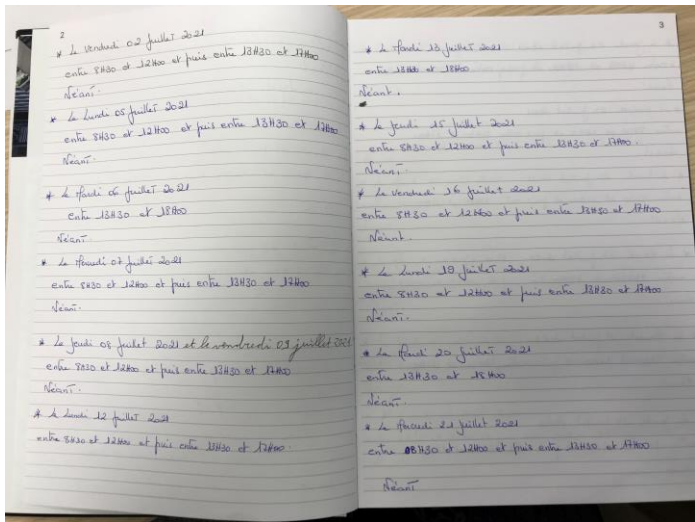 2
* Le Vendredi 02 juillet 2021
entre 8H30 et 12H00 et puis entre 13H30 et 17H00
Néant.
* Le Lundi 05 juillet 2021
entre 8H30 et 12H00 et puis entre 13H30 et 17H00
Néant.
* Le Mardi 06 juillet 2021
entre 13H30 et 18H00
Néant.
* Le Mercredi 07 juillet 2021
entre 8H30 et 12H00 et puis entre 13H30 et 17H00
Néant.
* Le Jeudi 08 juillet 2021 et le vendredi 09 juillet 2021
entre 8H30 et 12H00 et puis entre 13H30 et 17H00
Néant.
* Le Lundi 12 juillet 2021
entre 8H30 et 12H00 et puis entre 13H30 et 17H00.
3
* Le Mardi 13 juillet 2021
entre 13H30 et 18H00
Néant.
* Le Jeudi 15 juillet 2021
entre 8H30 et 12H00 et puis entre 13H30 et 17H00.
Néant.
* Le Vendredi 16 juillet 2021
entre 8H30 et 12H00 et puis entre 13H30 et 17H00
Néant.
* Le Lundi 19 juillet 2021
entre 8H30 et 12H00 et puis entre 13H30 et 17H00
Néant.
* Le Mardi 20 juillet 2021
entre 13H30 et 18H00
Néant.
* Le Mercredi 21 juillet 2021
entre 08H30 et 12H00 et puis entre 13H30 et 17H00
Néant